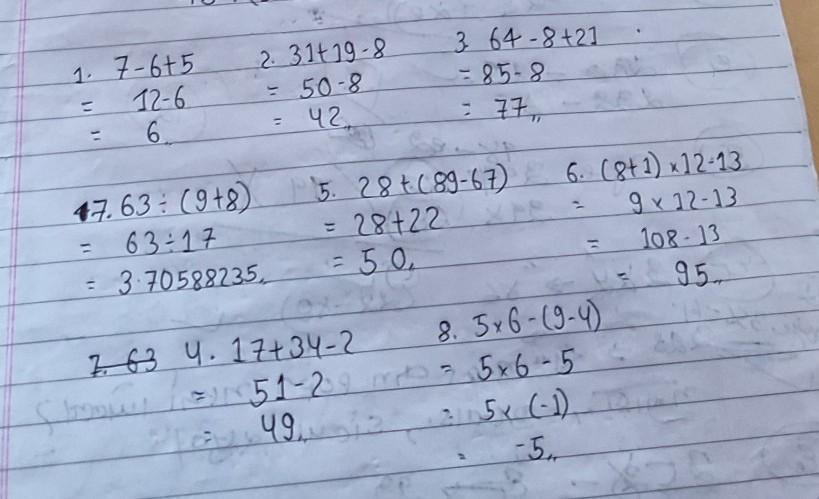 1. 7-6+5 2. 31+19-8 3. 64-8+21
= 12-6 = 50-8 = 85-8
= 6 = 42,, = 77,,
7. 63÷(9+8) 5. 28+(89-67) 6. (8+1)×12-13
= 63÷17 = 28+22 = 9×12-13
= 3.70588235,, = 50,, = 108-13
= 95,,
7. 63 4. 17+34-2 8. 5×6-(9-4)
= 51-2 = 5×6-5
= 49,, = 5×(-1)
= -5,,